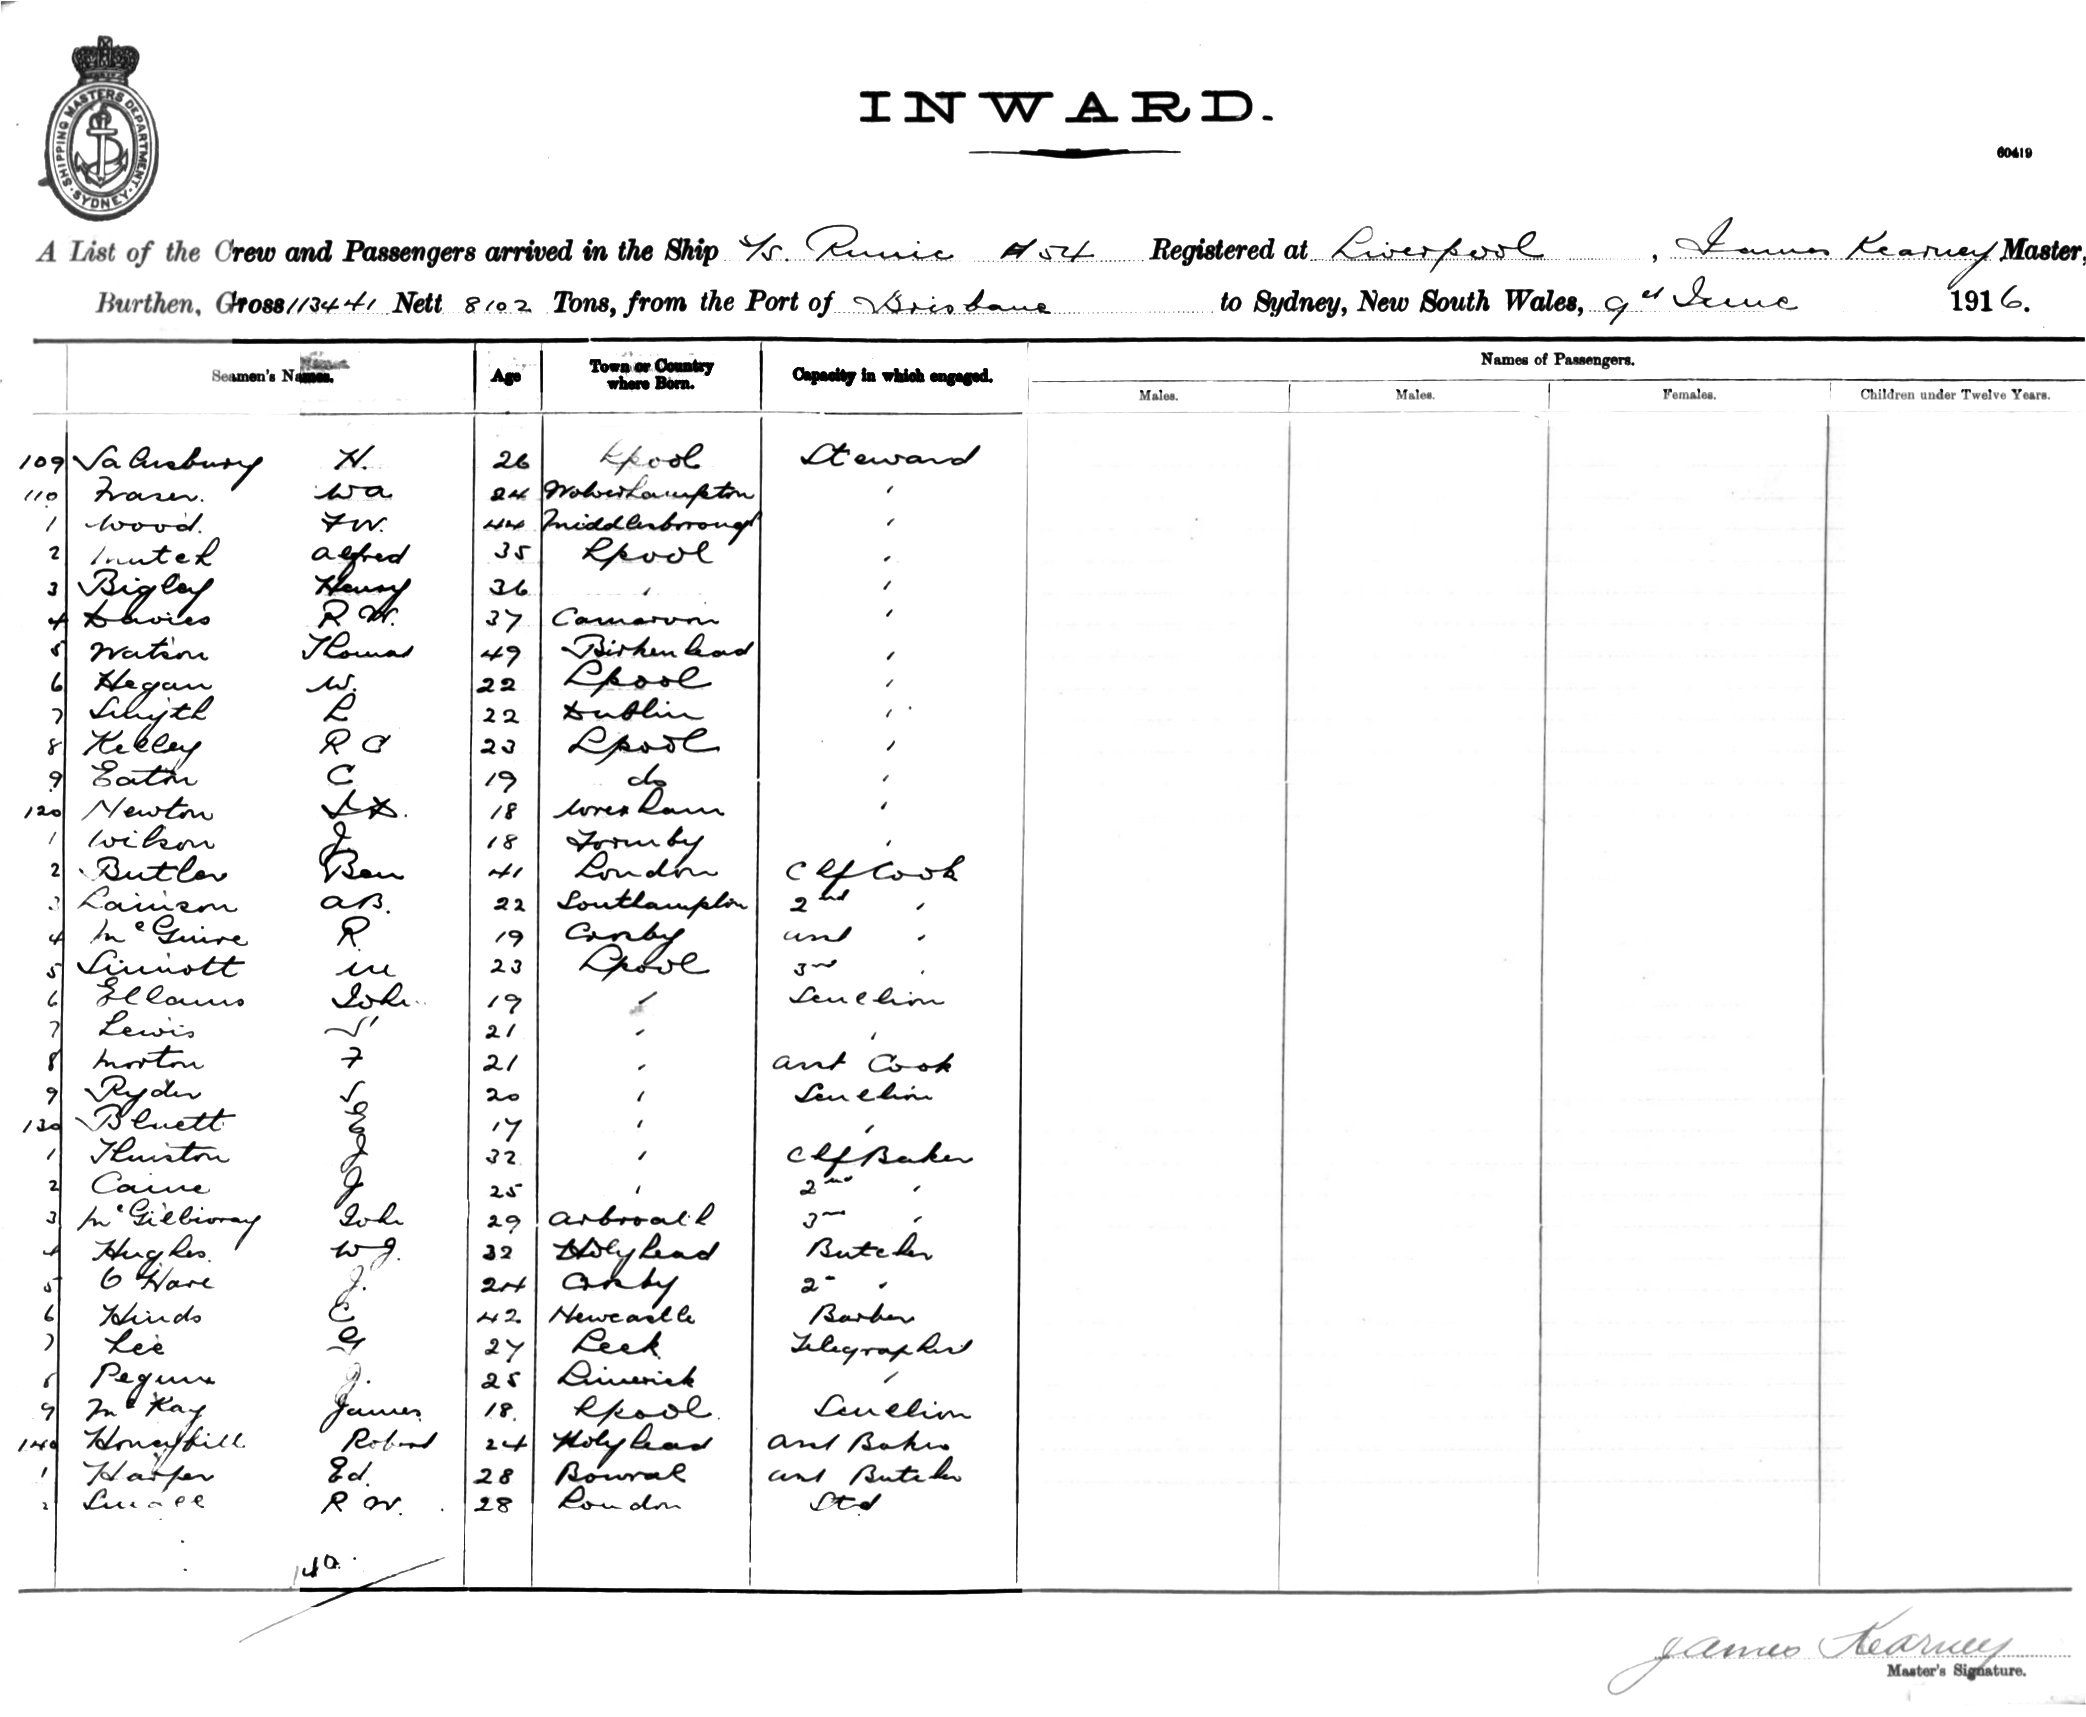 SHIPPING MASTERS DEPARTMENT. SYDNEY.
INWARD.
60419
A List of the Crew and Passengers arrived in the Ship S/S. Runic A54 Registered at Liverpool, James Kearney Master,
Burthen, Gross 113441 Nett 8102 Tons, from the Port of Brisbane to Sydney, New South Wales, 9th June 1916.
Seamen's Names. Age Town or Country where Born. Capacity in which engaged. Names of Passengers.
Males. Males. Females. Children under Twelve Years.
109 Salusbury H. 26 Lpool Steward
110 Fraser. Wa 24 Wolverhampton "
1 Wood. FW. 44 Middlesborough "
2 Mutch Alfred 35 Lpool "
3 Bigley Henry 36 " "
4 Davies R W. 37 Carnarvon "
5 Watson Thomas 49 Birkenhead "
6 Hegan W. 22 Lpool "
7 Smyth L 22 Dublin "
8 Kelley R C 23 Lpool "
9 Eaton C 19 do "
120 Newton 18 Wrexham "
1 Wilson J 18 Formby "
2 Butler Ben 41 London Chf Cook
3 Lainson AB. 22 Southampton 2nd "
4 McGuire R 19 Crosby asst "
5 Sinnott M 23 Lpool 3rd "
6 Ellams John 19 " Scullion
7 Lewis S 21 " "
8 Morton F 21 " asst Cook
9 Ryder S 20 " Scullion
130 Bluett E 17 " "
1 Thuiston J 32 " Chf Baker
2 Caine J 25 " 2nd "
3 McGillivray John 29 Arbroath 3rd "
4 Hughes WJ. 32 Holyhead Butcher
5 O Hare J. 24 Crosby 2nd "
6 Hinds C 42 Newcastle Barber
7 Lee G 27 Leek Telegraphist
8 Pegum J. 25 Limerick "
9 McKay James 18. Lpool Scullion
140 Honeybill Robert 24 Holyhead asst Baker
1 Harper Ed. 28 Bowral asst Butcher
2 Small R W. 28 London Std
James Kearney
Master's Signature.